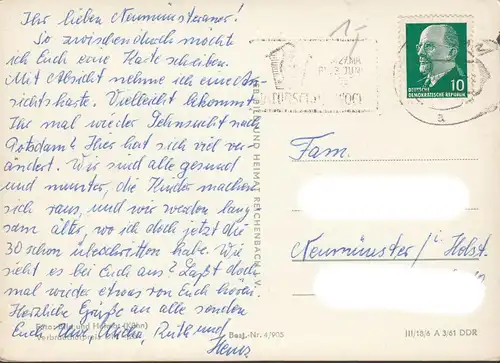 Ihr lieben Neumünsteraner!
So zwischendurch möchte
ich Euch eine Karte schreiben.
Mit Absicht nehme ich eine An-
sichtskarte. Vielleicht bekommt
Ihr mal wieder Sehnsucht nach
Potsdam? Hier hat sich viel ver-
ändert. Wir sind alle gesund
und munter, die Kinder machen
sich raus, und wir werden lang
sam älter, wo ich doch jetzt die
30 schon überschritten habe. Wie
sieht es bei Euch aus? Laßt doch
mal wieder etwas von Euch hören.
Herzliche Grüße an alle senden
Euch Ruth und
Heinz
Foto: Bild und Heimat
Verbraucherpreis
Best.-Nr. 4/905
BILD UND HEIMAT REICHENBACH i. V.
10
DEUTSCHE
DEMOKRATISCHE REPUBLIK
a
Fam.
Neumünster / i. Holst.
III/18/6 A 3/61 DDR